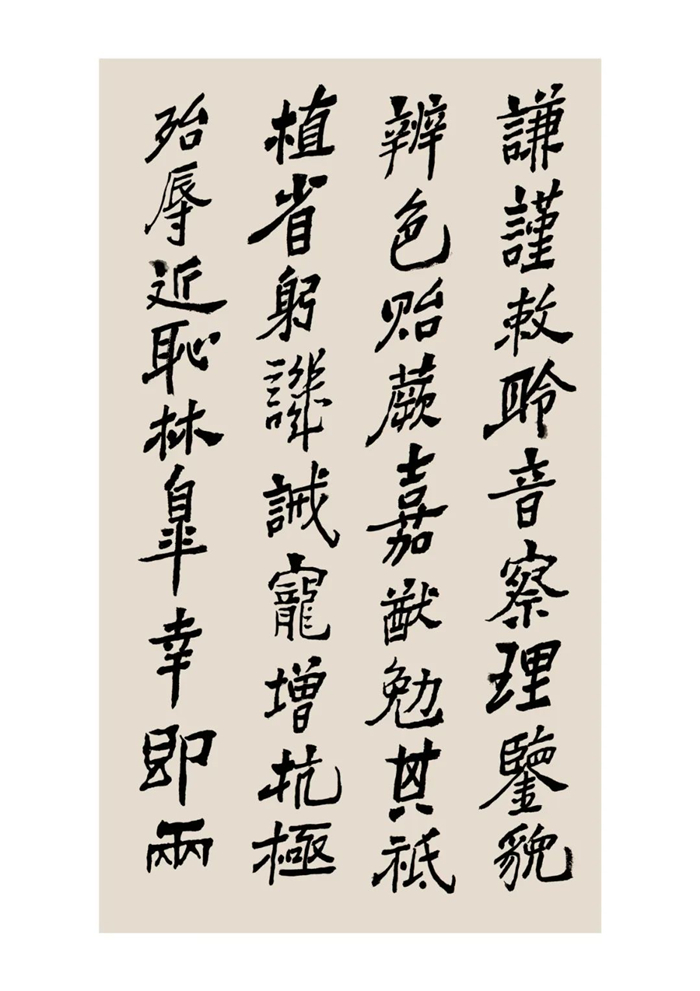 謙謹敕聆音察理鑒貌
辨色貽蕨嘉猷勉其祗
植省躬譏誡寵增抗極
殆辱近恥林皐幸即兩